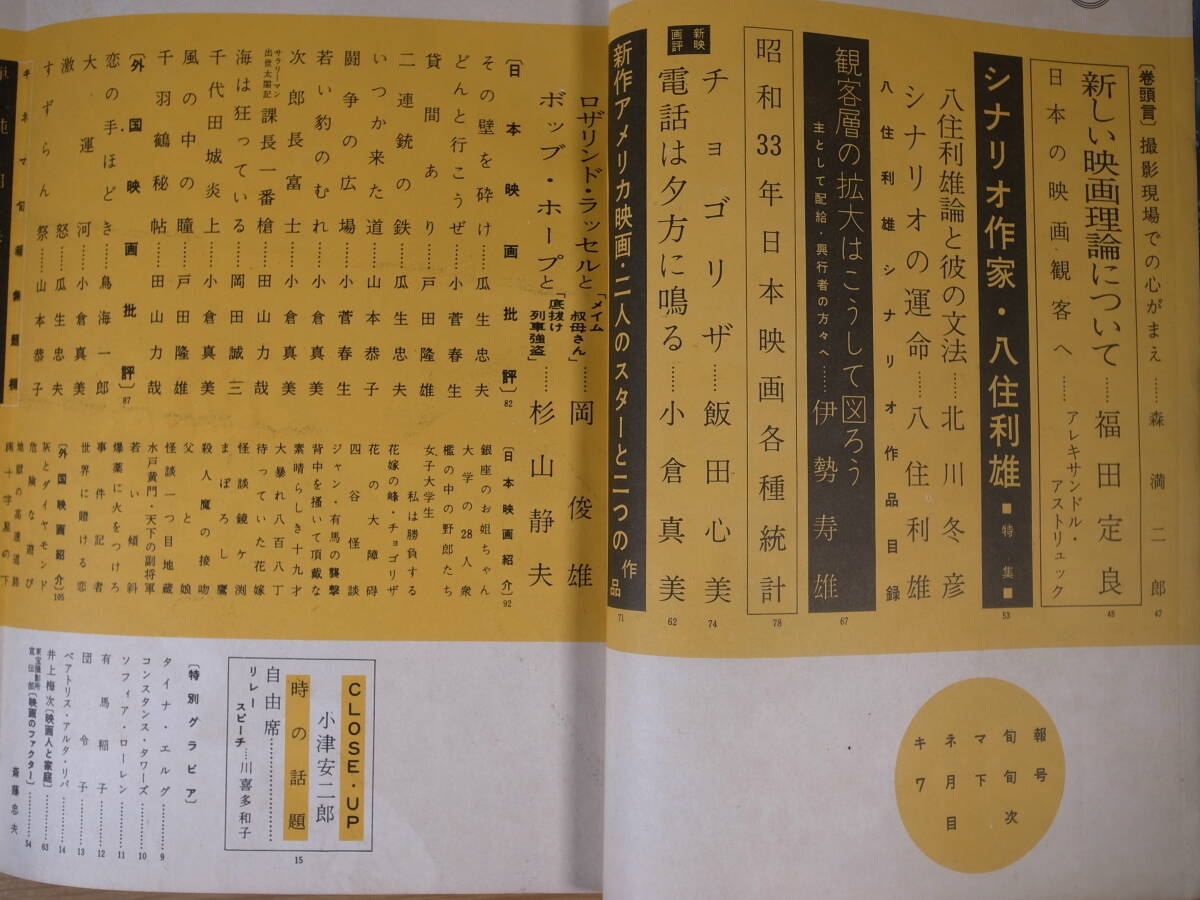 〔巻頭言〕撮影現場での心がまえ……森満二郎 47
新しい映画理論について……福田定良 48
日本の映画・観客へ……アレキサンドル・アストリュック
シナリオ作家・八住利雄■特集■ 53
八住利雄論と彼の文法……北川冬彦
シナリオの運命……八住利雄
八住利雄シナリオ作品目録
観客層の拡大はこうして図ろう
主として配給・興行者の方々へ……伊勢寿雄 67
昭和33年日本映画各種統計 78
新映画評
チョゴリザ……飯田心美 74
電話は夕方に鳴る……小倉真美 62
新作アメリカ映画・二人のスターと二つの作品 71
ロザリンド・ラッセルと「メイム叔母さん」……岡俊雄
ボッブ・ホープと「底抜け列車強盗」……杉山静夫
〔日本映画批評〕82
その壁を砕け……瓜生忠夫
どんと行こうぜ……小菅春生
貸間あり……戸田隆雄
二連銃の鉄……瓜生忠夫
いつか来た道……山本恭子
闘争の広場……小菅春生
若い豹のむれ……小倉真美
次郎長富士……小倉真美
サラリーマン出世太閤記 課長一番槍……田山力哉
海は狂っている……岡田誠三
千代田城炎上……小倉真美
風の中の瞳……戸田隆雄
千羽鶴秘帖……田山力哉
〔外国映画批評〕87
恋の手ほどき……鳥海一郎
大運河……小倉真美
激怒……瓜生忠夫
すずらん祭……山本恭子
〔日本映画紹介〕92
銀座のお姐ちゃん
大学の28人衆
檻の中の野郎たち
女子大学生
私は勝負する
花嫁の峰・チョゴリザ
花の大障碍
四谷怪談
ジャン・有馬の襲撃
背中を掻いて頂戴な
素晴らしき十九才
大暴れ八百八丁
待っていた花嫁
怪談鏡ケ渕
まぼろし鷹
殺人魔の接吻
父と娘
怪談一つ目地蔵
水戸黄門・天下の副将軍
若い傾斜
爆薬に火をつけろ
事件記者
世界に贈ける恋
〔外国映画紹介〕105
灰とダイヤモンド
危険な遊び
地獄の高速道路
十字架の下
CLOSE・UP
小津安二郎
時の話題
自由席……
リレースピーチ……川喜多和子
15
〔特別グラビア〕
タイナ・エルグ……9
コンスタンス・タワーズ……10
ソフィア・ローレン……11
有馬稲子……12
団令子……13
ベアトリス・アルタ・リバ……14
井上梅次〔映画人と家庭〕……63
東宝撮影所宣伝部〔映画のファクター〕……斎藤忠夫 54
キネマ旬報
7月下旬号
目次